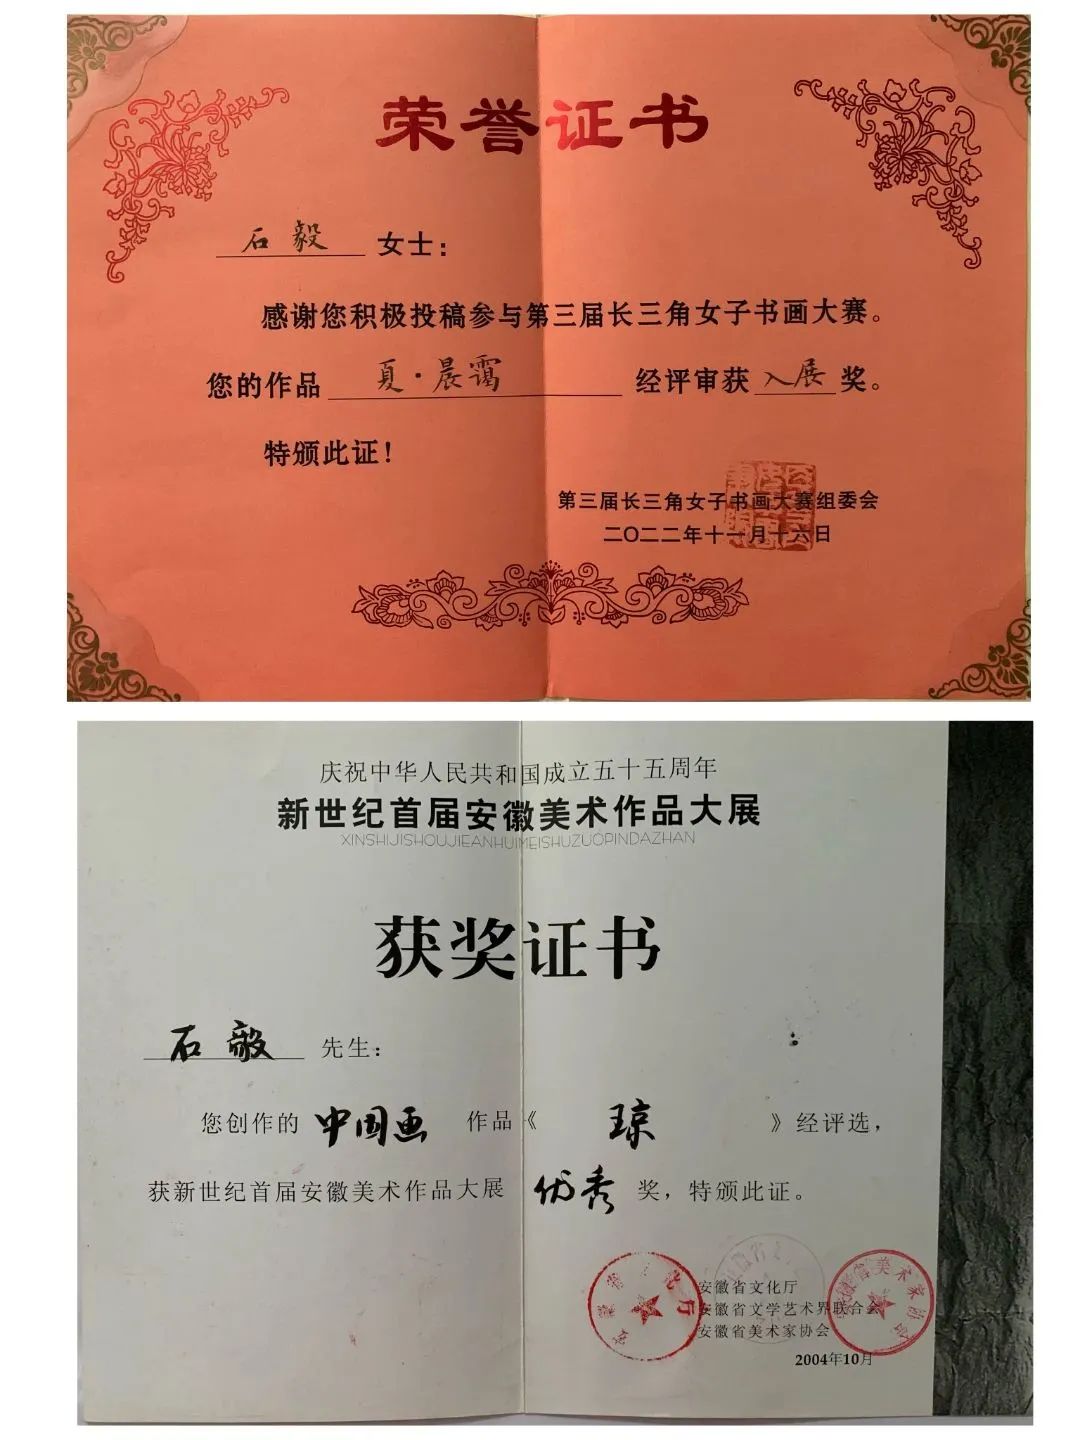 荣誉证书
石毅 女士：
感谢您积极投稿参与第三届长三角女子书画大赛。
您的作品 夏·晨霭 经评审获 入展 奖。
特颁此证！
第三届长三角女子书画大赛组委会
二〇二二年十一月十六日
庆祝中华人民共和国成立五十五周年
新世纪首届安徽美术作品大展
XINSHIJISHOUJIEANHUIMEISHUZUOPINDAZHAN
获奖证书
石毅 先生：
您创作的 中国画 作品《 琼 》经评选，
获新世纪首届安徽美术作品大展 优秀 奖，特颁此证。
安徽省文化厅
安徽省文学艺术界联合会
安徽省美术家协会
2004年10月